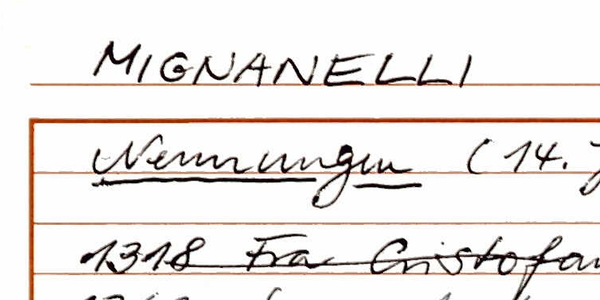 MIGNANELLI
Nennungen (14.
1318 Fra Cristofan